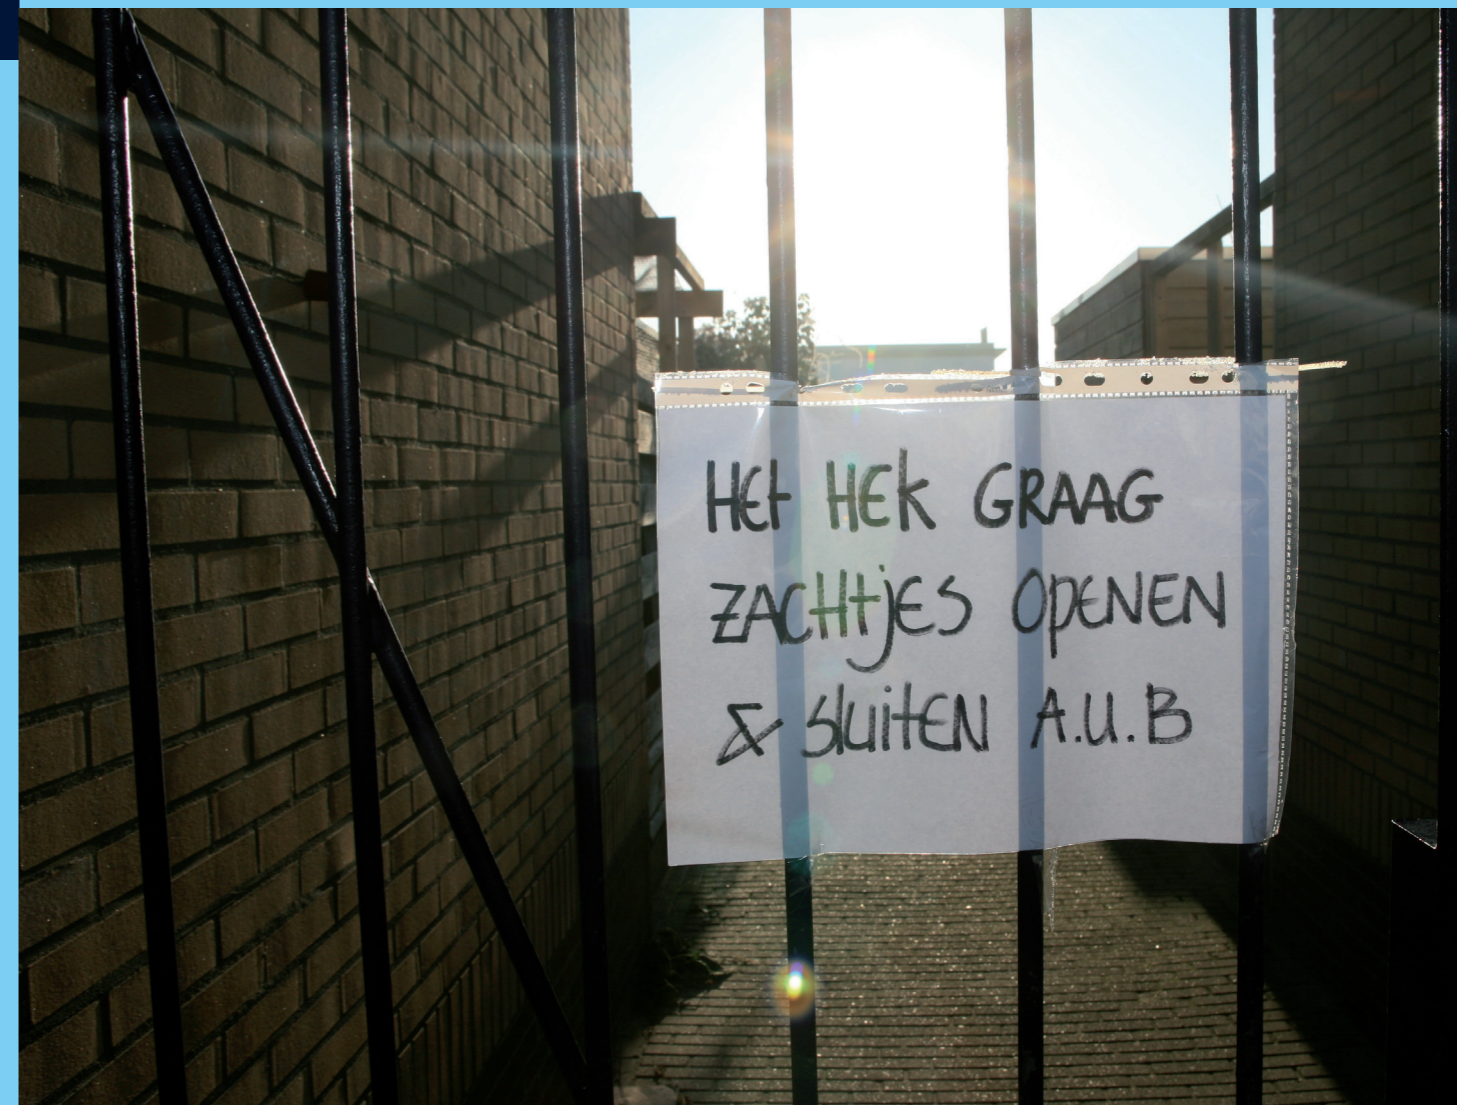 HET HEK GRAAG
ZACHTJES OPENEN
& SLUITEN A.U.B